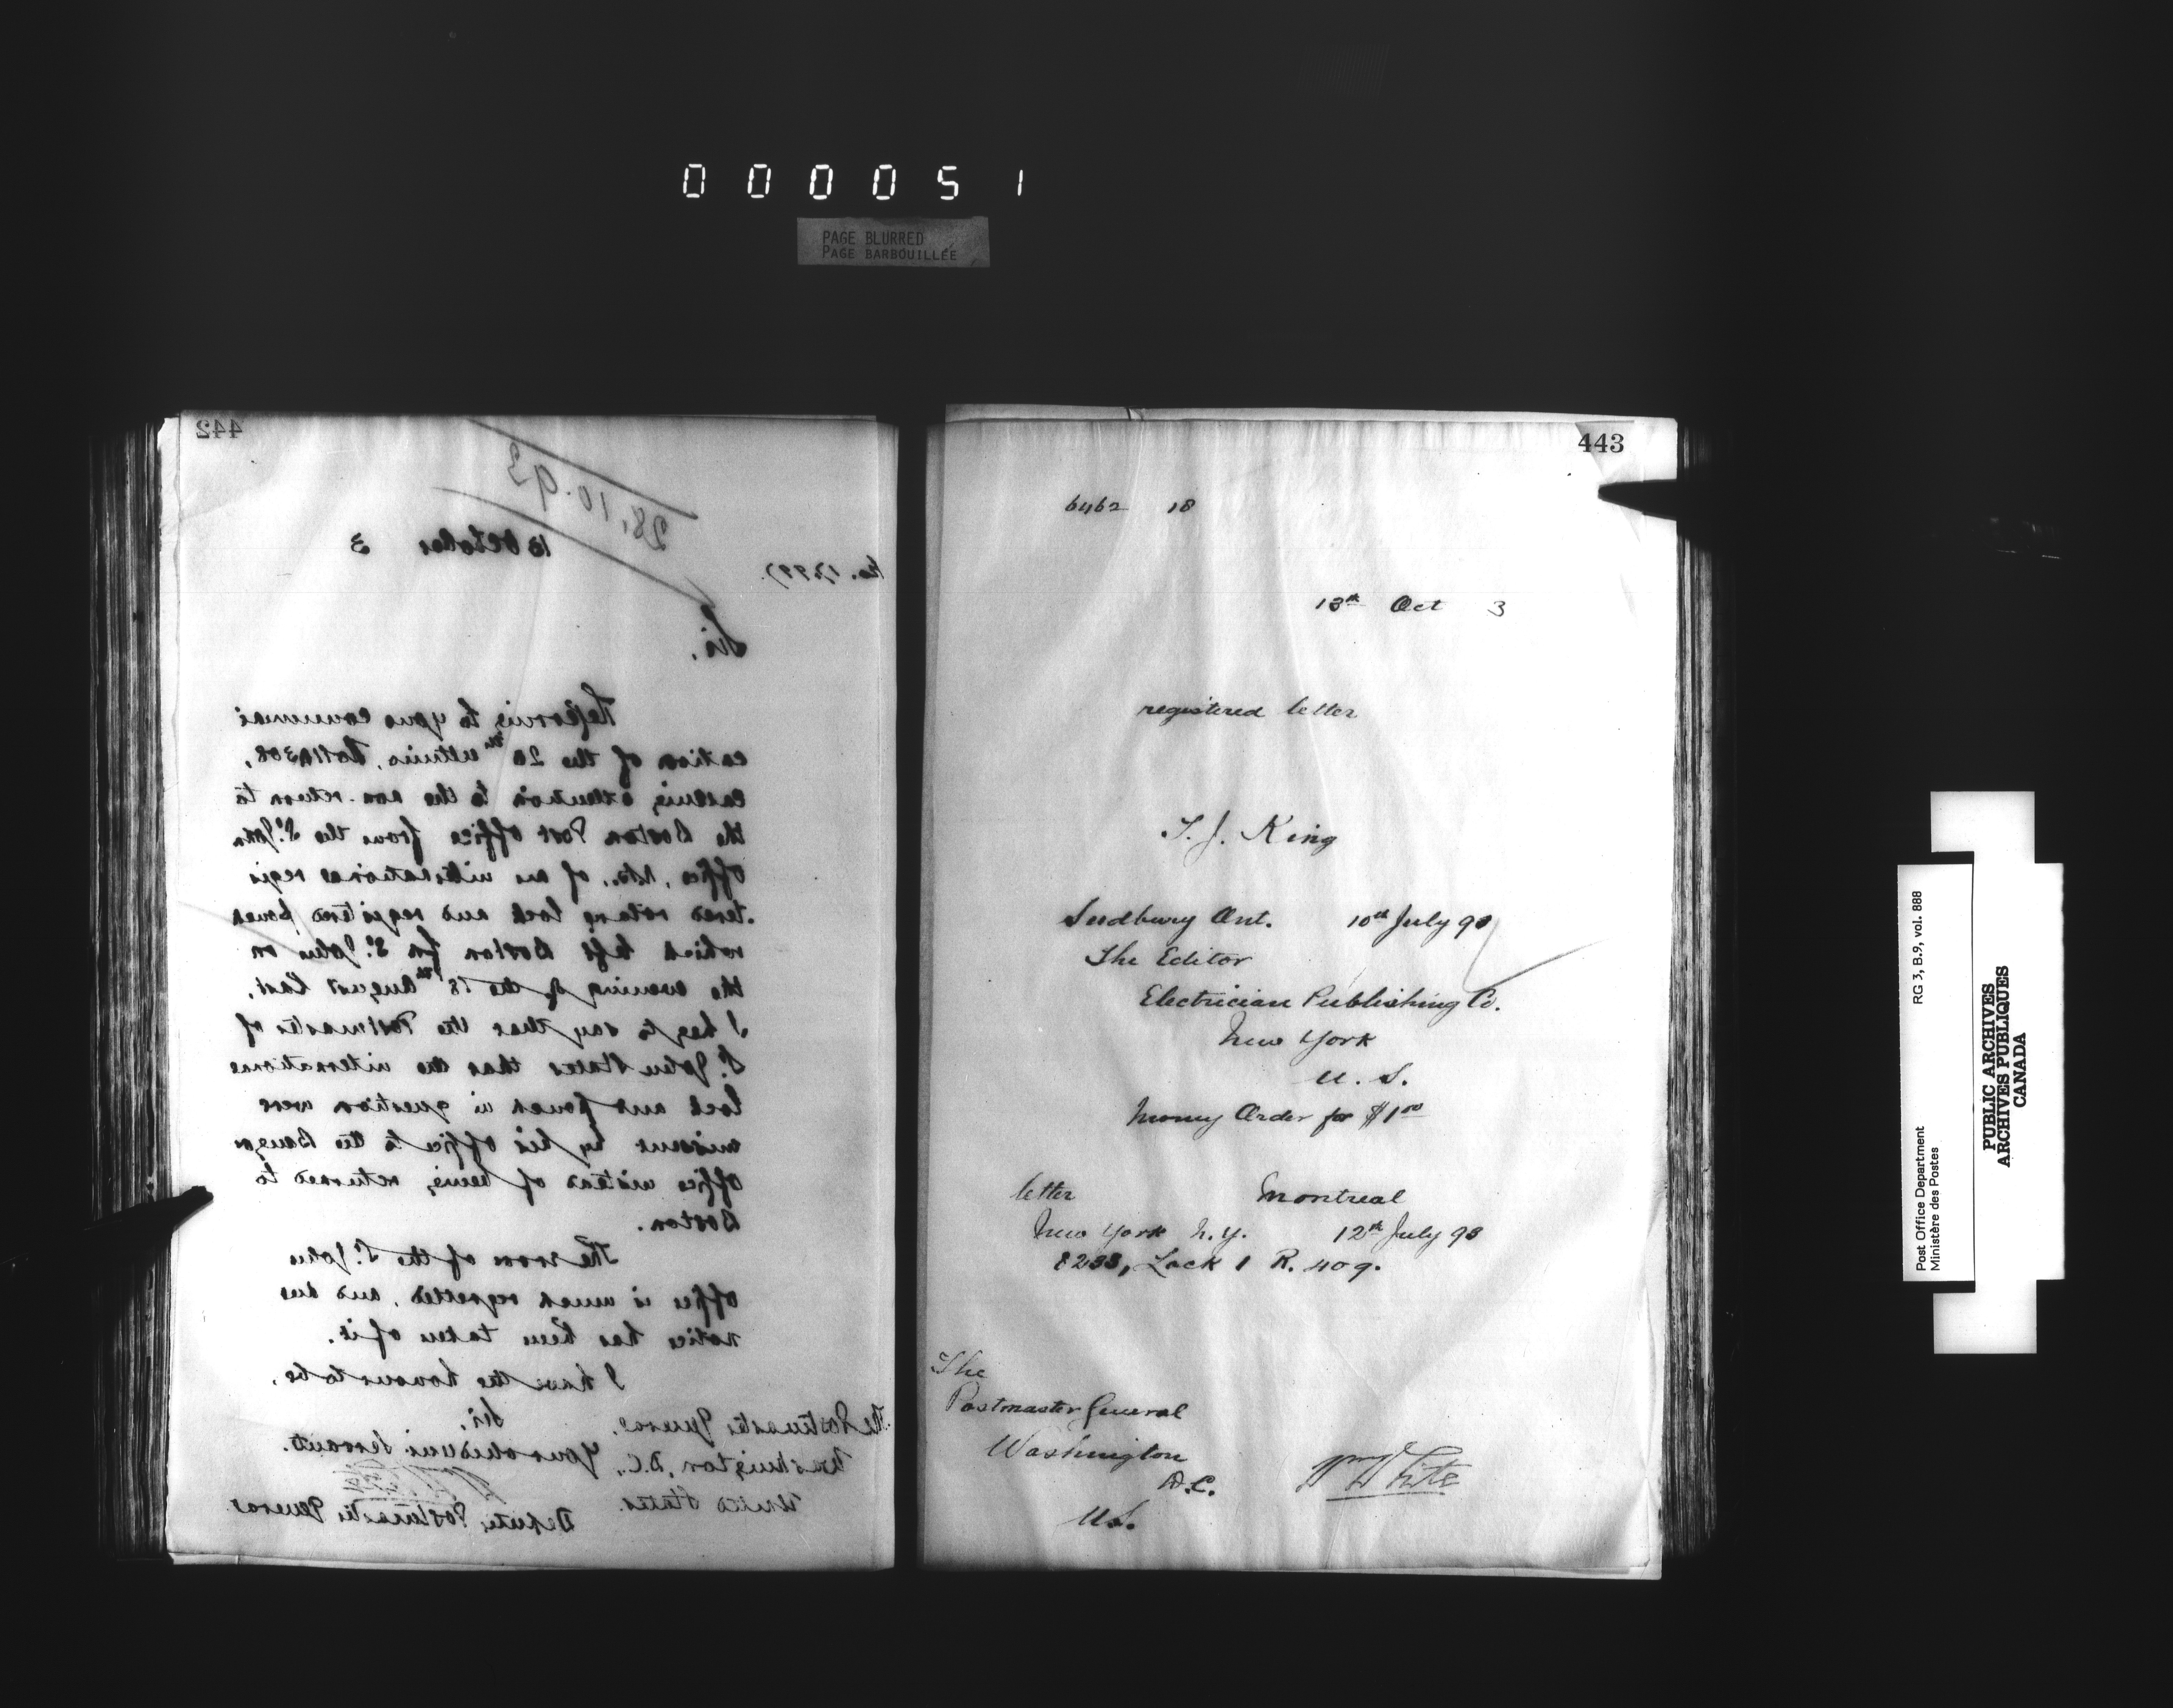 000051
PAGE BLURRED
PAGE BARBOUILLÉE
442
28.10.93
13 October 3
No.
Sir,
Referring to your communi
cation of the 20th ultimo,
calling attention to the non-return to
the Boston Post Office from the St. John
Office, N.B., of an international regis
tered rotary lock and registered pouch
which left Boston for St. John on
the evening of the 18th August last,
I beg to say that the Postmaster of
St. John states that the international
lock and pouch in question were
missent by his office to the Bangor
office instead of being returned to
Boston.
The error of the St. John
office is much regretted, and due
notice has been taken of it.
I have the honour to be,
Sir,
Your obedient Servant.
Deputy Postmaster General
The Postmaster General,
Washington, D.C.,
United States.
443
6462 18
13th Oct 3
registered letter
T. J. King
Sudbury Ont. 10th July 93
The Editor
Electrician Publishing Co.
New York
U. S.
Money Order for $1.00
letter Montreal
New York N.Y. 12th July 93
8233, Lock 1 R. 409.
The
Postmaster General
Washington
D.C.
U.S.
Wm White
Post Office Department
Ministère des Postes
RG 3, B.9, vol. 888
PUBLIC ARCHIVES
ARCHIVES PUBLIQUES
CANADA